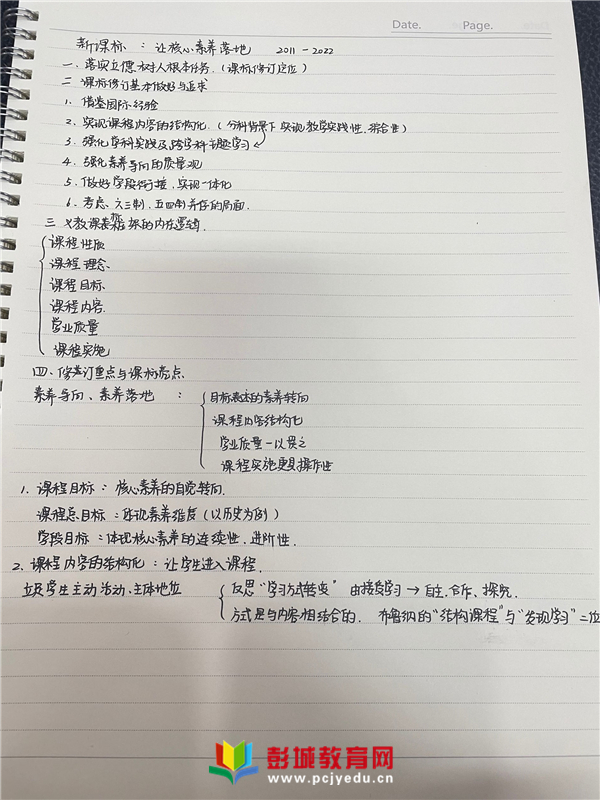 Date. Page.
新课标：让核心素养落地 2011-2022
一、落实立德树人根本任务.（课标修订定位）
二 课标修订基本做好与追求
1. 借鉴国际经验
2. 实现课程内容的结构化.（分科背景下实现教学实践性.综合性）
3. 强化学科实践及跨学科主题学习
4. 强化素养导向的质量观
5. 做好学段衔接,实现一体化
6. 考虑.六三制,五四制并存的局面.
三 义教课标框架的内在逻辑.
课程性质
课程理念
课程目标
课程内容
学业质量
课程实施
四、修订重点与课标亮点
素养导向、素养落地：
目标表述的素养转向
课程内容结构化
学业质量一以贯之
课程实施更具操作性
1. 课程目标：核心素养的自觉转向.
课程总目标：体现素养维度(以历史为例)
学段目标：体现核心素养的连续性.进阶性.
2. 课程内容的结构化：让学生进入课程.
立足学生主动活动、主体地位
反思"学习方式转变" 由接受学习→自主.合作、探究.
方式是与内容相结合的. 布鲁纳的"结构课程"与"发现学习"二位
彭城教育网
www.pcjyedu.cn